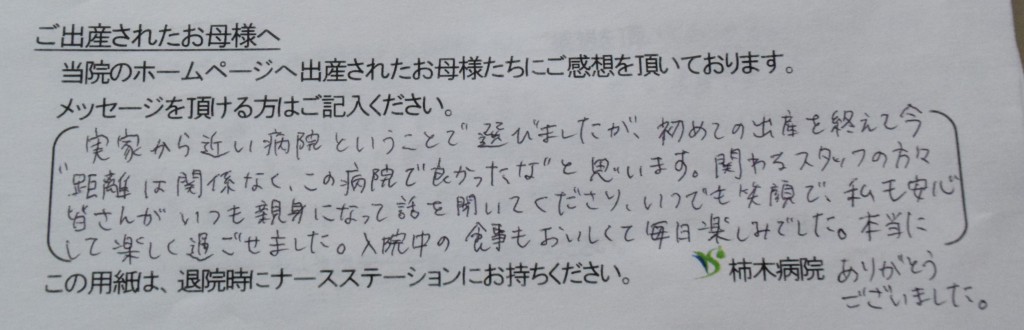 ご出産されたお母様へ
当院のホームページへ出産されたお母様たちにご感想を頂いております。
メッセージを頂ける方はご記入ください。
実家から近い病院ということで選びましたが、初めての出産を終えて今
"距離は関係なく、この病院で良かったな"と思います。関わるスタッフの方々
皆さんがいつも親身になって話を聞いてくださり、いつでも笑顔で、私も安心
して楽しく過ごせました。入院中の食事もおいしくて毎日楽しみでした。本当に
ありがとう
ございました。
この用紙は、退院時にナースステーションにお持ちください。
柿木病院